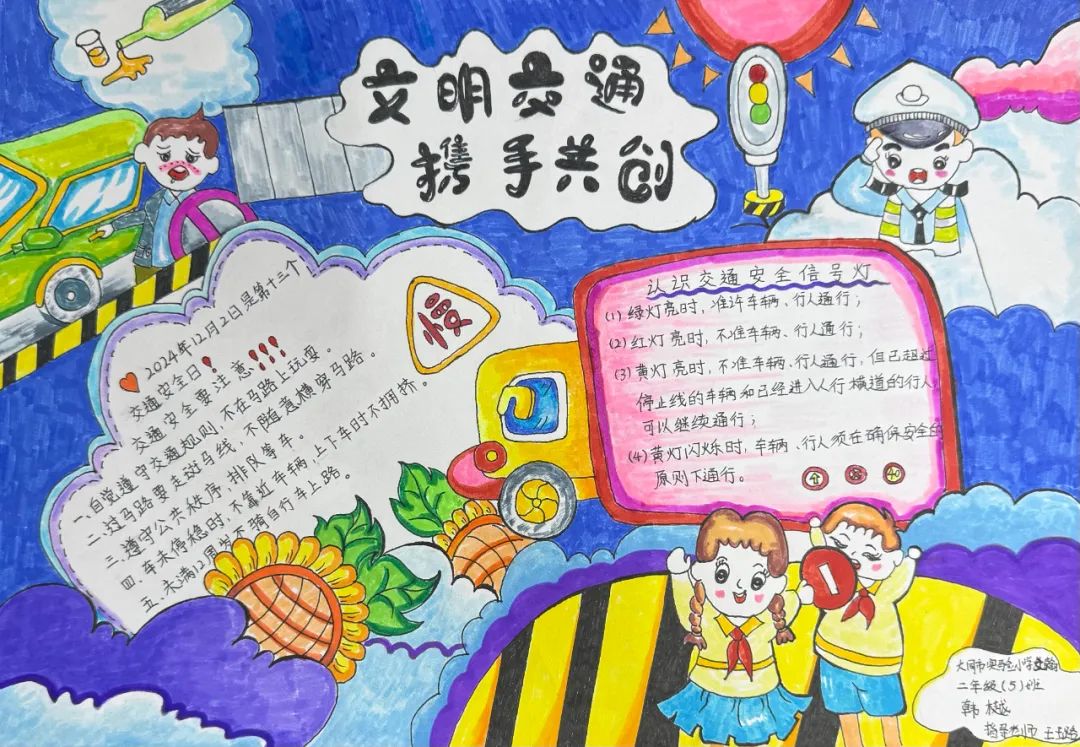 文明交通
携手共创
2024年12月2日是第十三个
交通安全日!
交通安全要注意!!!
一.自觉遵守交通规则,不在马路上玩耍。
二.过马路要走斑马线,不随意横穿马路。
三.遵守公共秩序,排队等车。
四.车未停稳时,不靠近车辆,上下车时不拥挤。
五.未满12周岁不骑自行车上路。
慢
认识交通安全信号灯
(1)绿灯亮时,准许车辆、行人通行;
(2)红灯亮时,不准车辆、行人通行;
(3)黄灯亮时,不准车辆、行人通行,但已超过
停止线的车辆和已经进入人行横道的行人,
可以继续通行;
(4)黄灯闪烁时,车辆、行人须在确保安全的
原则下通行。
40
大同市实验小学
二年级(5)班
韩樾
指导老师 王